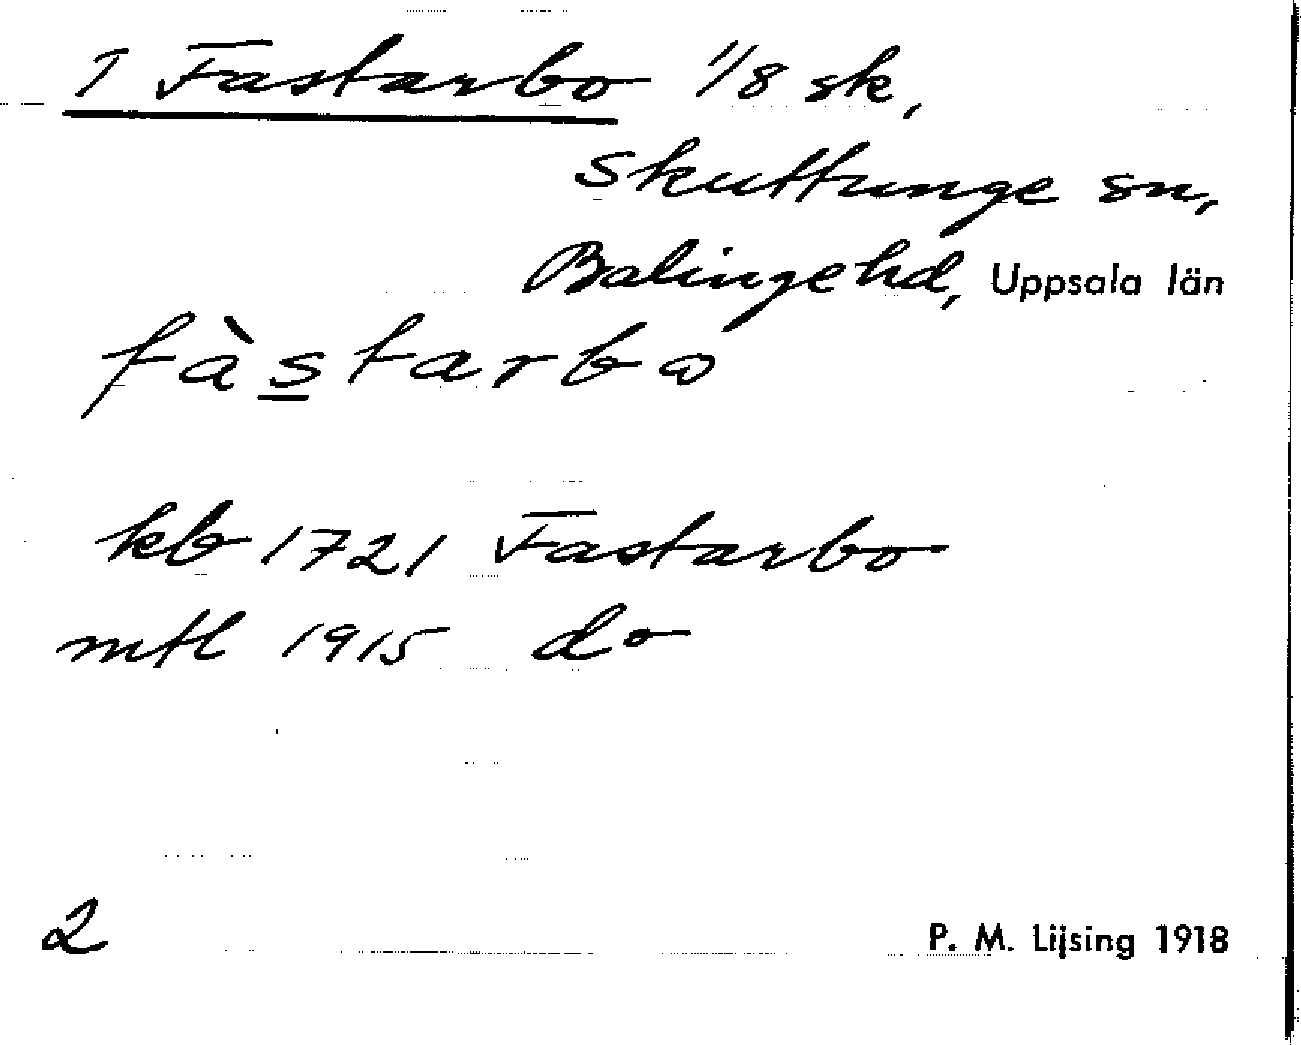 1 Fastarbo 1/8 sk,
Skuttunge sn,
Balingehd, Uppsala län
fàstarbo
kb 1721 Fastarbo
mtl 1915 do
2
P. M. Lijsing 1918